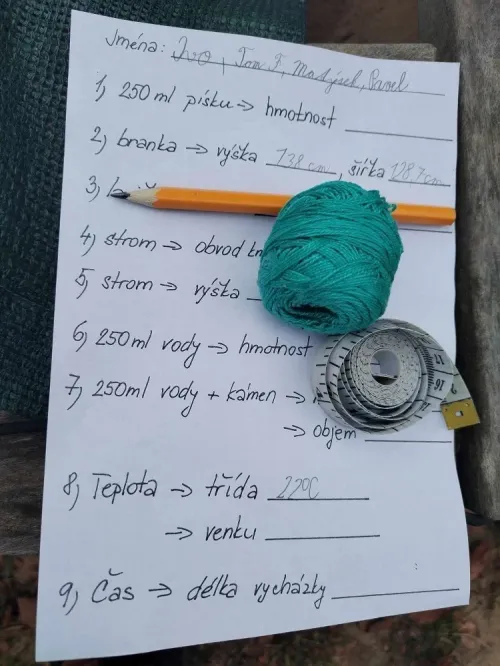 Jména: Ivo, Tom F, Matýsek, Pavel
1) 250 ml písku → hmotnost
2) branka → výška 138 cm, šířka 128,7 cm
3)
4) strom → obvod
5) strom → výška
6) 250 ml vody → hmotnost
7) 250 ml vody + kámen →
→ objem
8) Teplota → třída 22°C
→ venku
9) Čas → délka vycházky